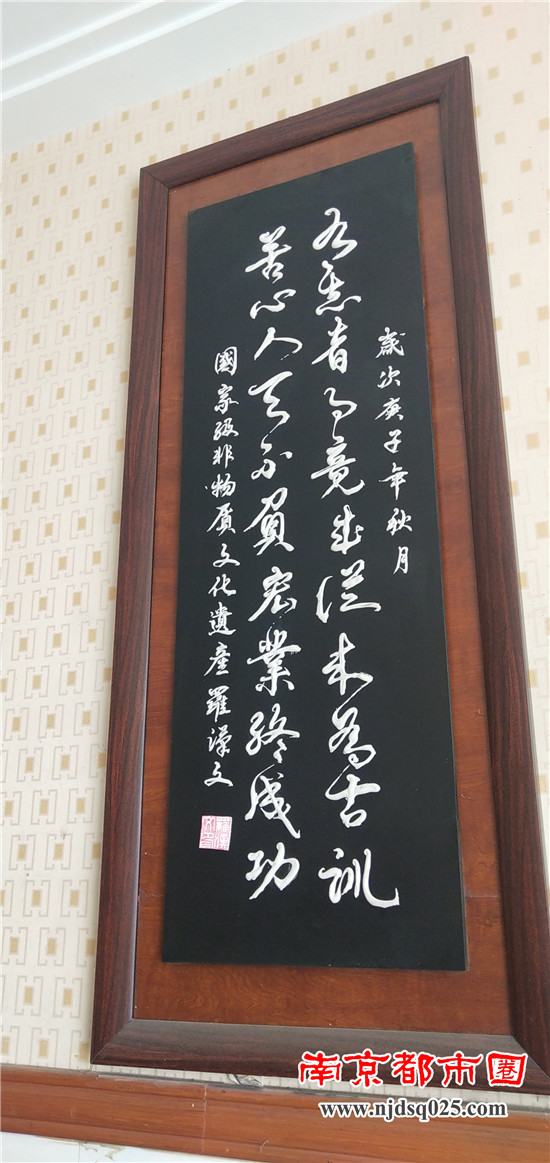 歲次庚子年秋月
有志者事竟成從來為古訓
苦心人天不負宏業終成功
國家級非物质文化遺產羅漢文
南京都市圈
www.njdsq025.com